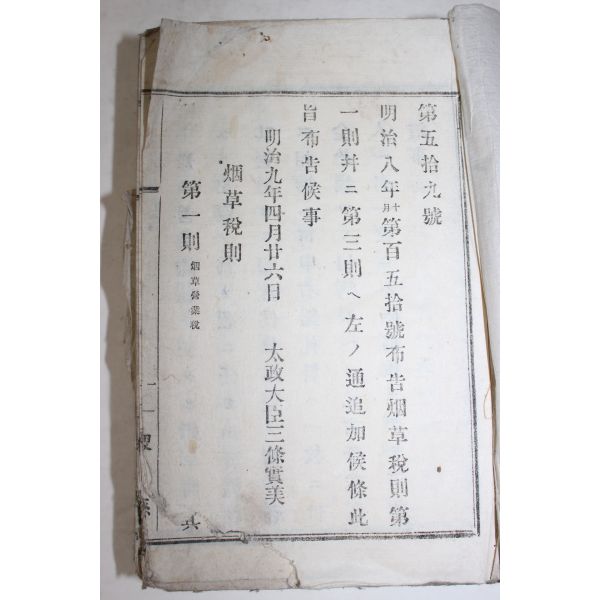 第五拾九號
明治八年十月第百五拾號布告烟草稅則第
一則幷ニ第三則ヘ左ノ通追加候條此
旨布吿候事
明治九年四月廿六日 太政大臣三條實美
烟草稅則
第一則 烟草營業稅